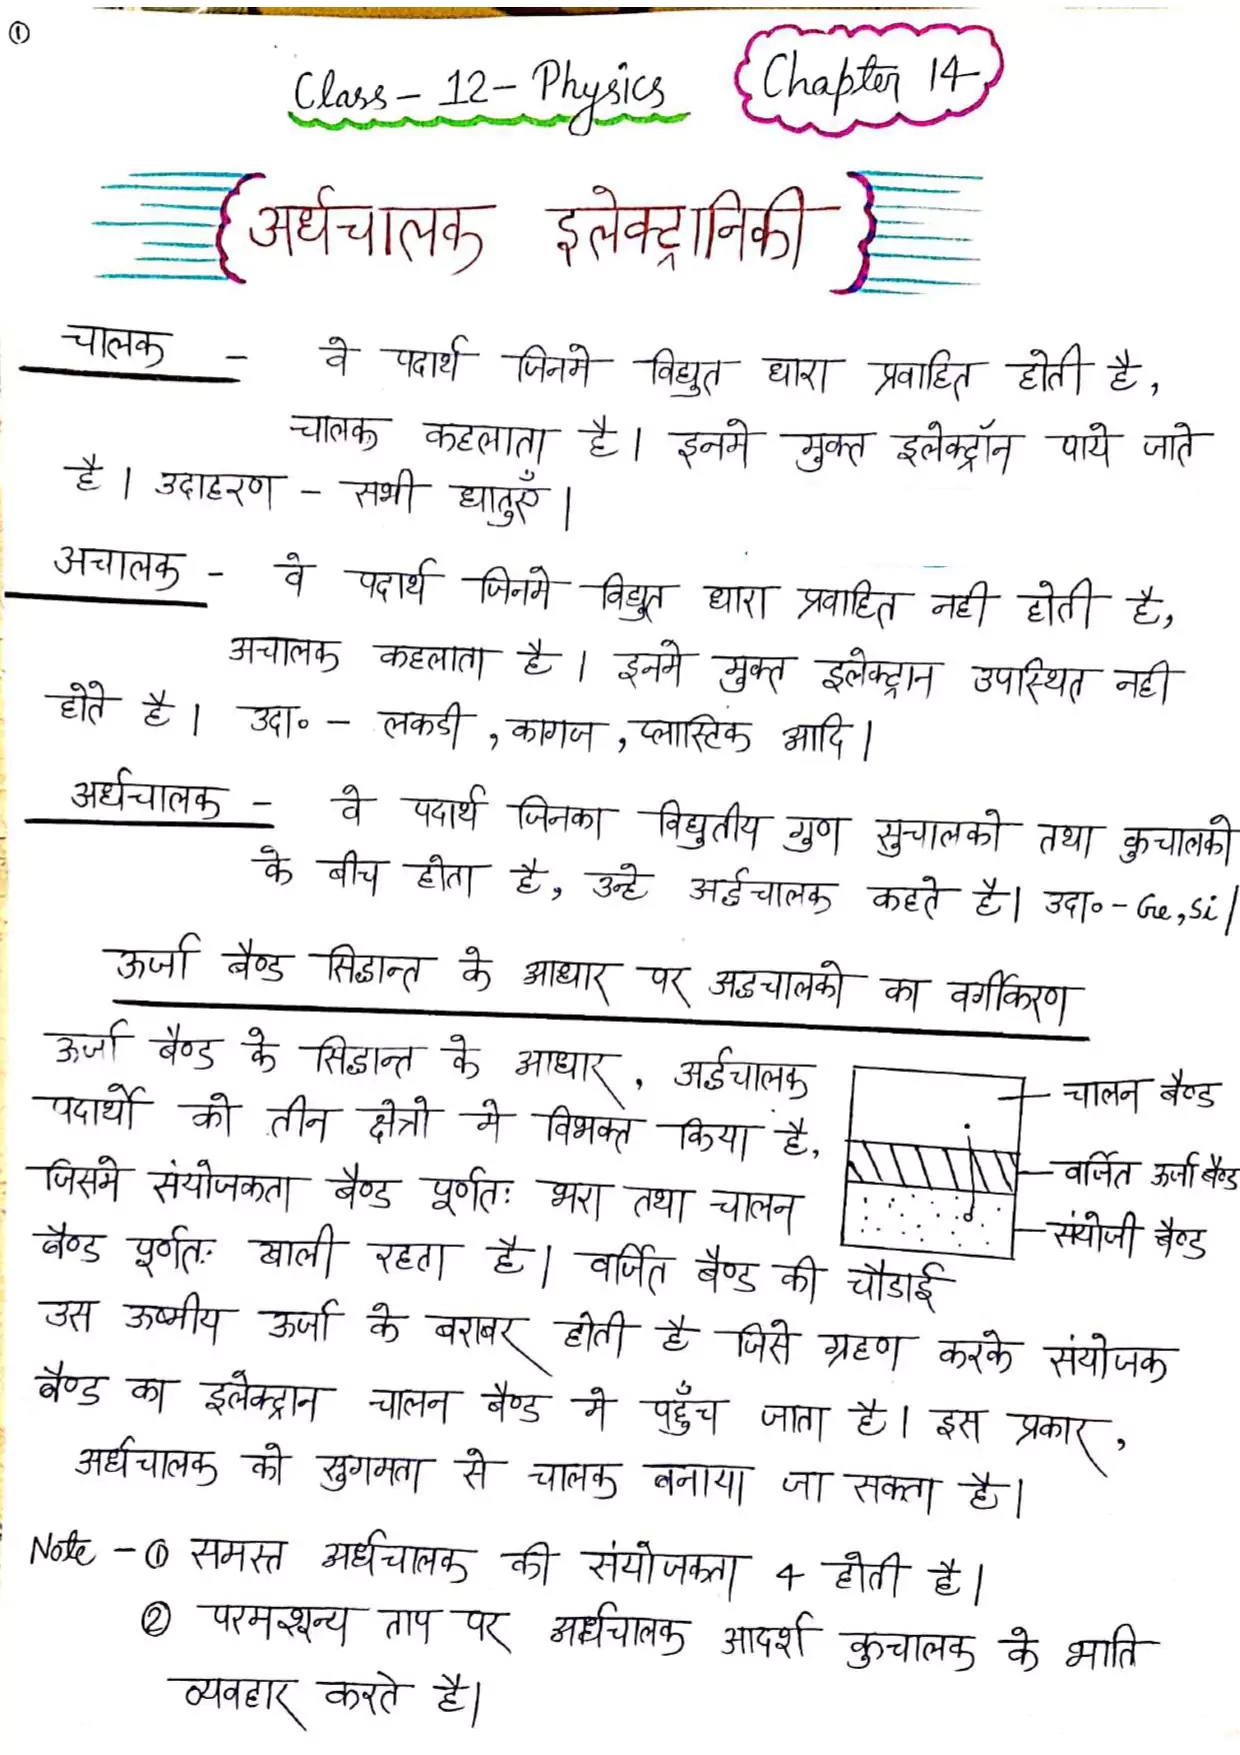 ①
Class - 12 - Physics
Chapter 14
अर्धचालक इलेक्ट्रानिकी
चालक - वे पदार्थ जिनमे विद्युत धारा प्रवाहित होती है,
चालक कहलाता है। इनमे मुक्त इलेक्ट्रॉन पाये जाते
है। उदाहरण - सभी धातुएँ।
अचालक - वे पदार्थ जिनमे विद्युत धारा प्रवाहित नही होती है,
अचालक कहलाता है। इनमे मुक्त इलेक्ट्रान उपस्थित नही
होते है। उदा० - लकडी, कागज, प्लास्टिक आदि।
अर्धचालक - वे पदार्थ जिनका विद्युतीय गुण सुचालको तथा कुचालको
के बीच होता है, उन्हे अर्द्धचालक कहते है। उदा० - Ge, Si।
ऊर्जा बैण्ड सिद्धान्त के आधार पर अद्धचालको का वर्गीकरण
ऊर्जा बैण्ड के सिद्धान्त के आधार, अर्द्धचालक
पदार्थो को तीन क्षेत्रो मे विभक्त किया है,
जिसमे संयोजकता बैण्ड पूर्णतः भरा तथा चालन
बैण्ड पूर्णतः खाली रहता है। वर्जित बैण्ड की चौडाई
चालन बैण्ड
वर्जित ऊर्जा बैण्ड
संयोजी बैण्ड
उस ऊष्मीय ऊर्जा के बराबर होती है जिसे ग्रहण करके संयोजक
बैण्ड का इलेक्ट्रान चालन बैण्ड मे पहुँच जाता है। इस प्रकार,
अर्धचालक को सुगमता से चालक बनाया जा सकता है।
Note - ① समस्त अर्धचालक की संयोजकता 4 होती है।
② परमशून्य ताप पर अर्धचालक आदर्श कुचालक के भाति
व्यवहार करते है।